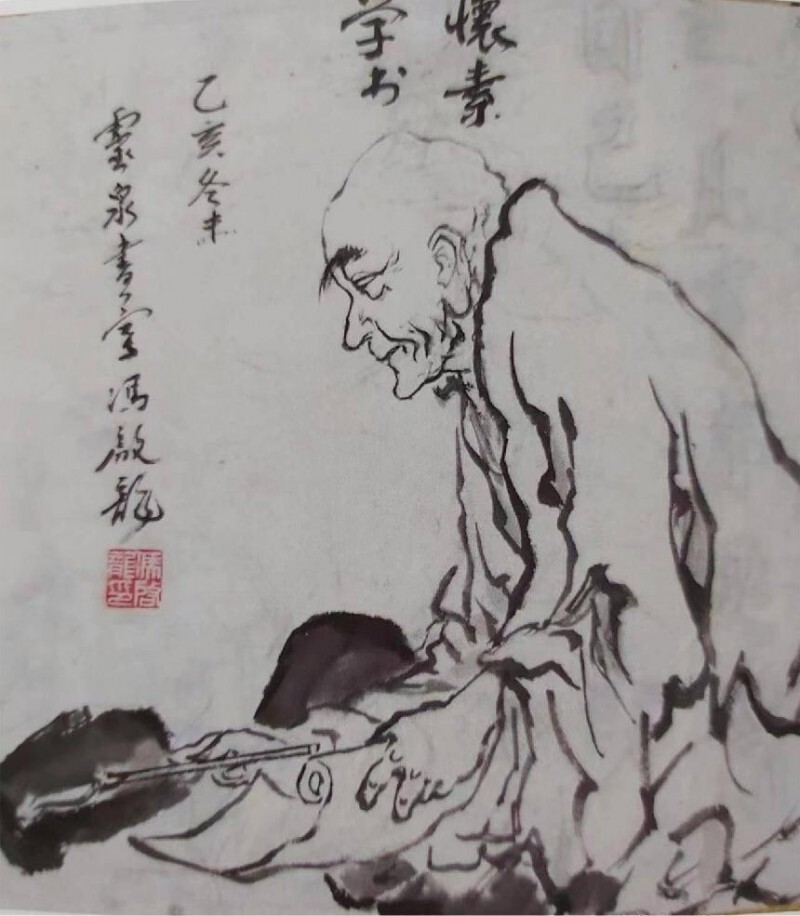 懷素
学书
乙亥冬末
靈泉書字馮啟龍
馮啟龍印